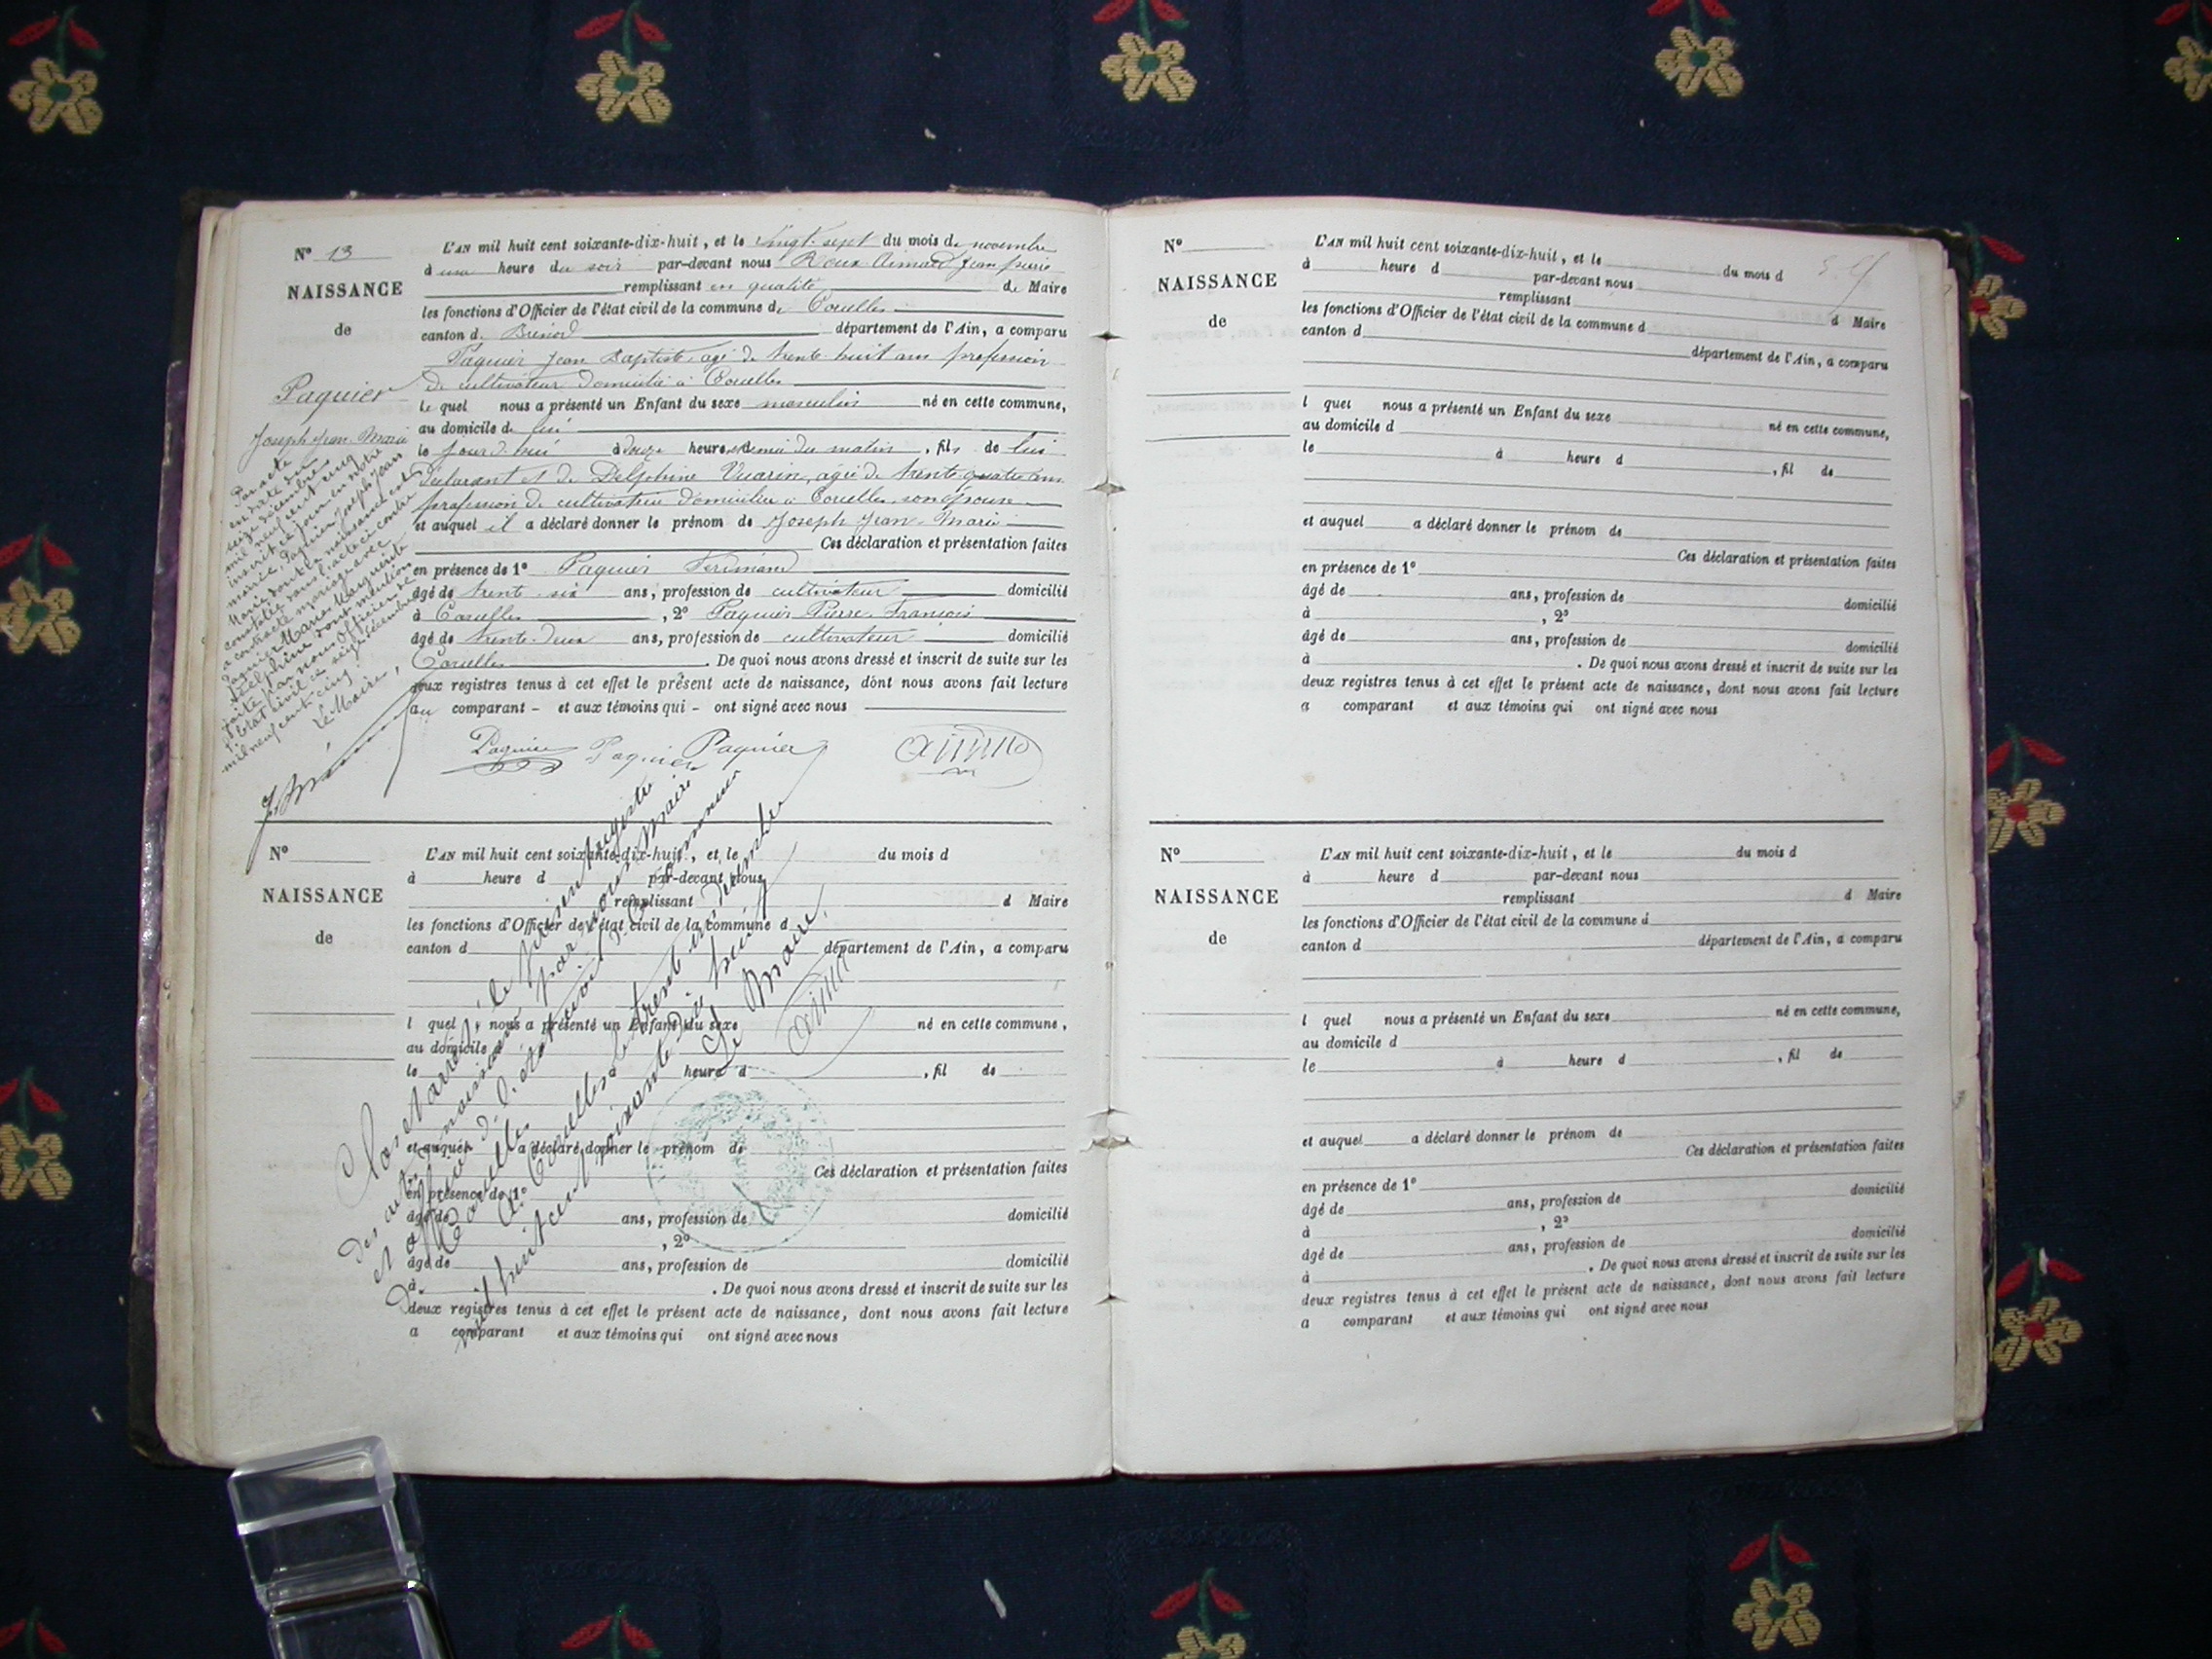 N° 13
NAISSANCE
de
Paquier
Joseph Jean Marie
L'AN mil huit cent soixante-dix-huit, et le vingt-sept du mois de novembre
à une heure du soir par-devant nous Roux Aimard Jean pierre
remplissant en qualité de Maire
les fonctions d'Officier de l'état civil de la commune de Corcelles
canton de Brénod département de l'Ain, a comparu
Paquier Jean Baptiste, agé de trente huit ans profession
de cultivateur domicilié à Corcelles
le quel nous a présenté un Enfant du sexe masculin né en cette commune,
au domicile de lui
le jour d'hui à douze heures demie du matin, fils de lui
déclarant et de Delphine Vuarin, agée de trente quatre ans
profession de cultivatrice domiciliée à Corcelles son épouse
et auquel il a déclaré donner le prénom de Joseph Jean Marie
Ces déclaration et présentation faites
en présence de 1° Paquier Ferdinand
âgé de trente-six ans, profession de cultivateur domicilié
à Corcelles, 2° Paquier Pierre François
âgé de trente-deux ans, profession de cultivateur domicilié
Corcelles. De quoi nous avons dressé et inscrit de suite sur les
deux registres tenus à cet effet le présent acte de naissance, dont nous avons fait lecture
au comparant - et aux témoins qui - ont signé avec nous
Paquier Paquier Paquier
Par acte
en date du
seize décembre
mil neuf cent cinq
inscrit ce jour en notre
mairie, Paquier Joseph Jean
Marie dont la naissance est
constatée dans l'acte ci contre
a contracté mariage avec
Paquier Marie Marguerite
Delphine dont mention
faite par nous Officier de
l'état civil ce seize décembre
mil neuf cent cinq.
Le Maire,
N°
NAISSANCE
de
L'AN mil huit cent soixante-dix-huit, et le du mois d
à heure d par-devant nous
remplissant d Maire
les fonctions d'Officier de l'état civil de la commune d
canton d département de l'Ain, a comparu
l quel nous a présenté un Enfant du sexe né en cette commune,
au domicile d
le à heure d, fil de
et auquel a déclaré donner le prénom de
Ces déclaration et présentation faites
en présence de 1°
âgé de ans, profession de domicilié
à, 2°
âgé de ans, profession de domicilié
à. De quoi nous avons dressé et inscrit de suite sur les
deux registres tenus à cet effet le présent acte de naissance, dont nous avons fait lecture
a comparant et aux témoins qui ont signé avec nous
Clos et arrêté le présent registre
des actes de naissance par nous Maire
et officier de l'état civil de la commune
de Corcelles
à Corcelles le trente un décembre
mil huit cent soixante dix huit
Le Maire,
N°
NAISSANCE
de
L'AN mil huit cent soixante-dix-huit, et le du mois d
à heure d par-devant nous
remplissant d Maire
les fonctions d'Officier de l'état civil de la commune d
canton d département de l'Ain, a comparu
l quel nous a présenté un Enfant du sexe né en cette commune,
au domicile d
le à heure d, fil de
et auquel a déclaré donner le prénom de
Ces déclaration et présentation faites
en présence de 1°
âgé de ans, profession de domicilié
à, 2°
âgé de ans, profession de domicilié
à. De quoi nous avons dressé et inscrit de suite sur les
deux registres tenus à cet effet le présent acte de naissance, dont nous avons fait lecture
a comparant et aux témoins qui ont signé avec nous
N°
NAISSANCE
de
L'AN mil huit cent soixante-dix-huit, et le du mois d
à heure d par-devant nous
remplissant d Maire
les fonctions d'Officier de l'état civil de la commune d
canton d département de l'Ain, a comparu
l quel nous a présenté un Enfant du sexe né en cette commune,
au domicile d
le à heure d, fil de
et auquel a déclaré donner le prénom de
Ces déclaration et présentation faites
en présence de 1°
âgé de ans, profession de domicilié
à, 2°
âgé de ans, profession de domicilié
à. De quoi nous avons dressé et inscrit de suite sur les
deux registres tenus à cet effet le présent acte de naissance, dont nous avons fait lecture
a comparant et aux témoins qui ont signé avec nous